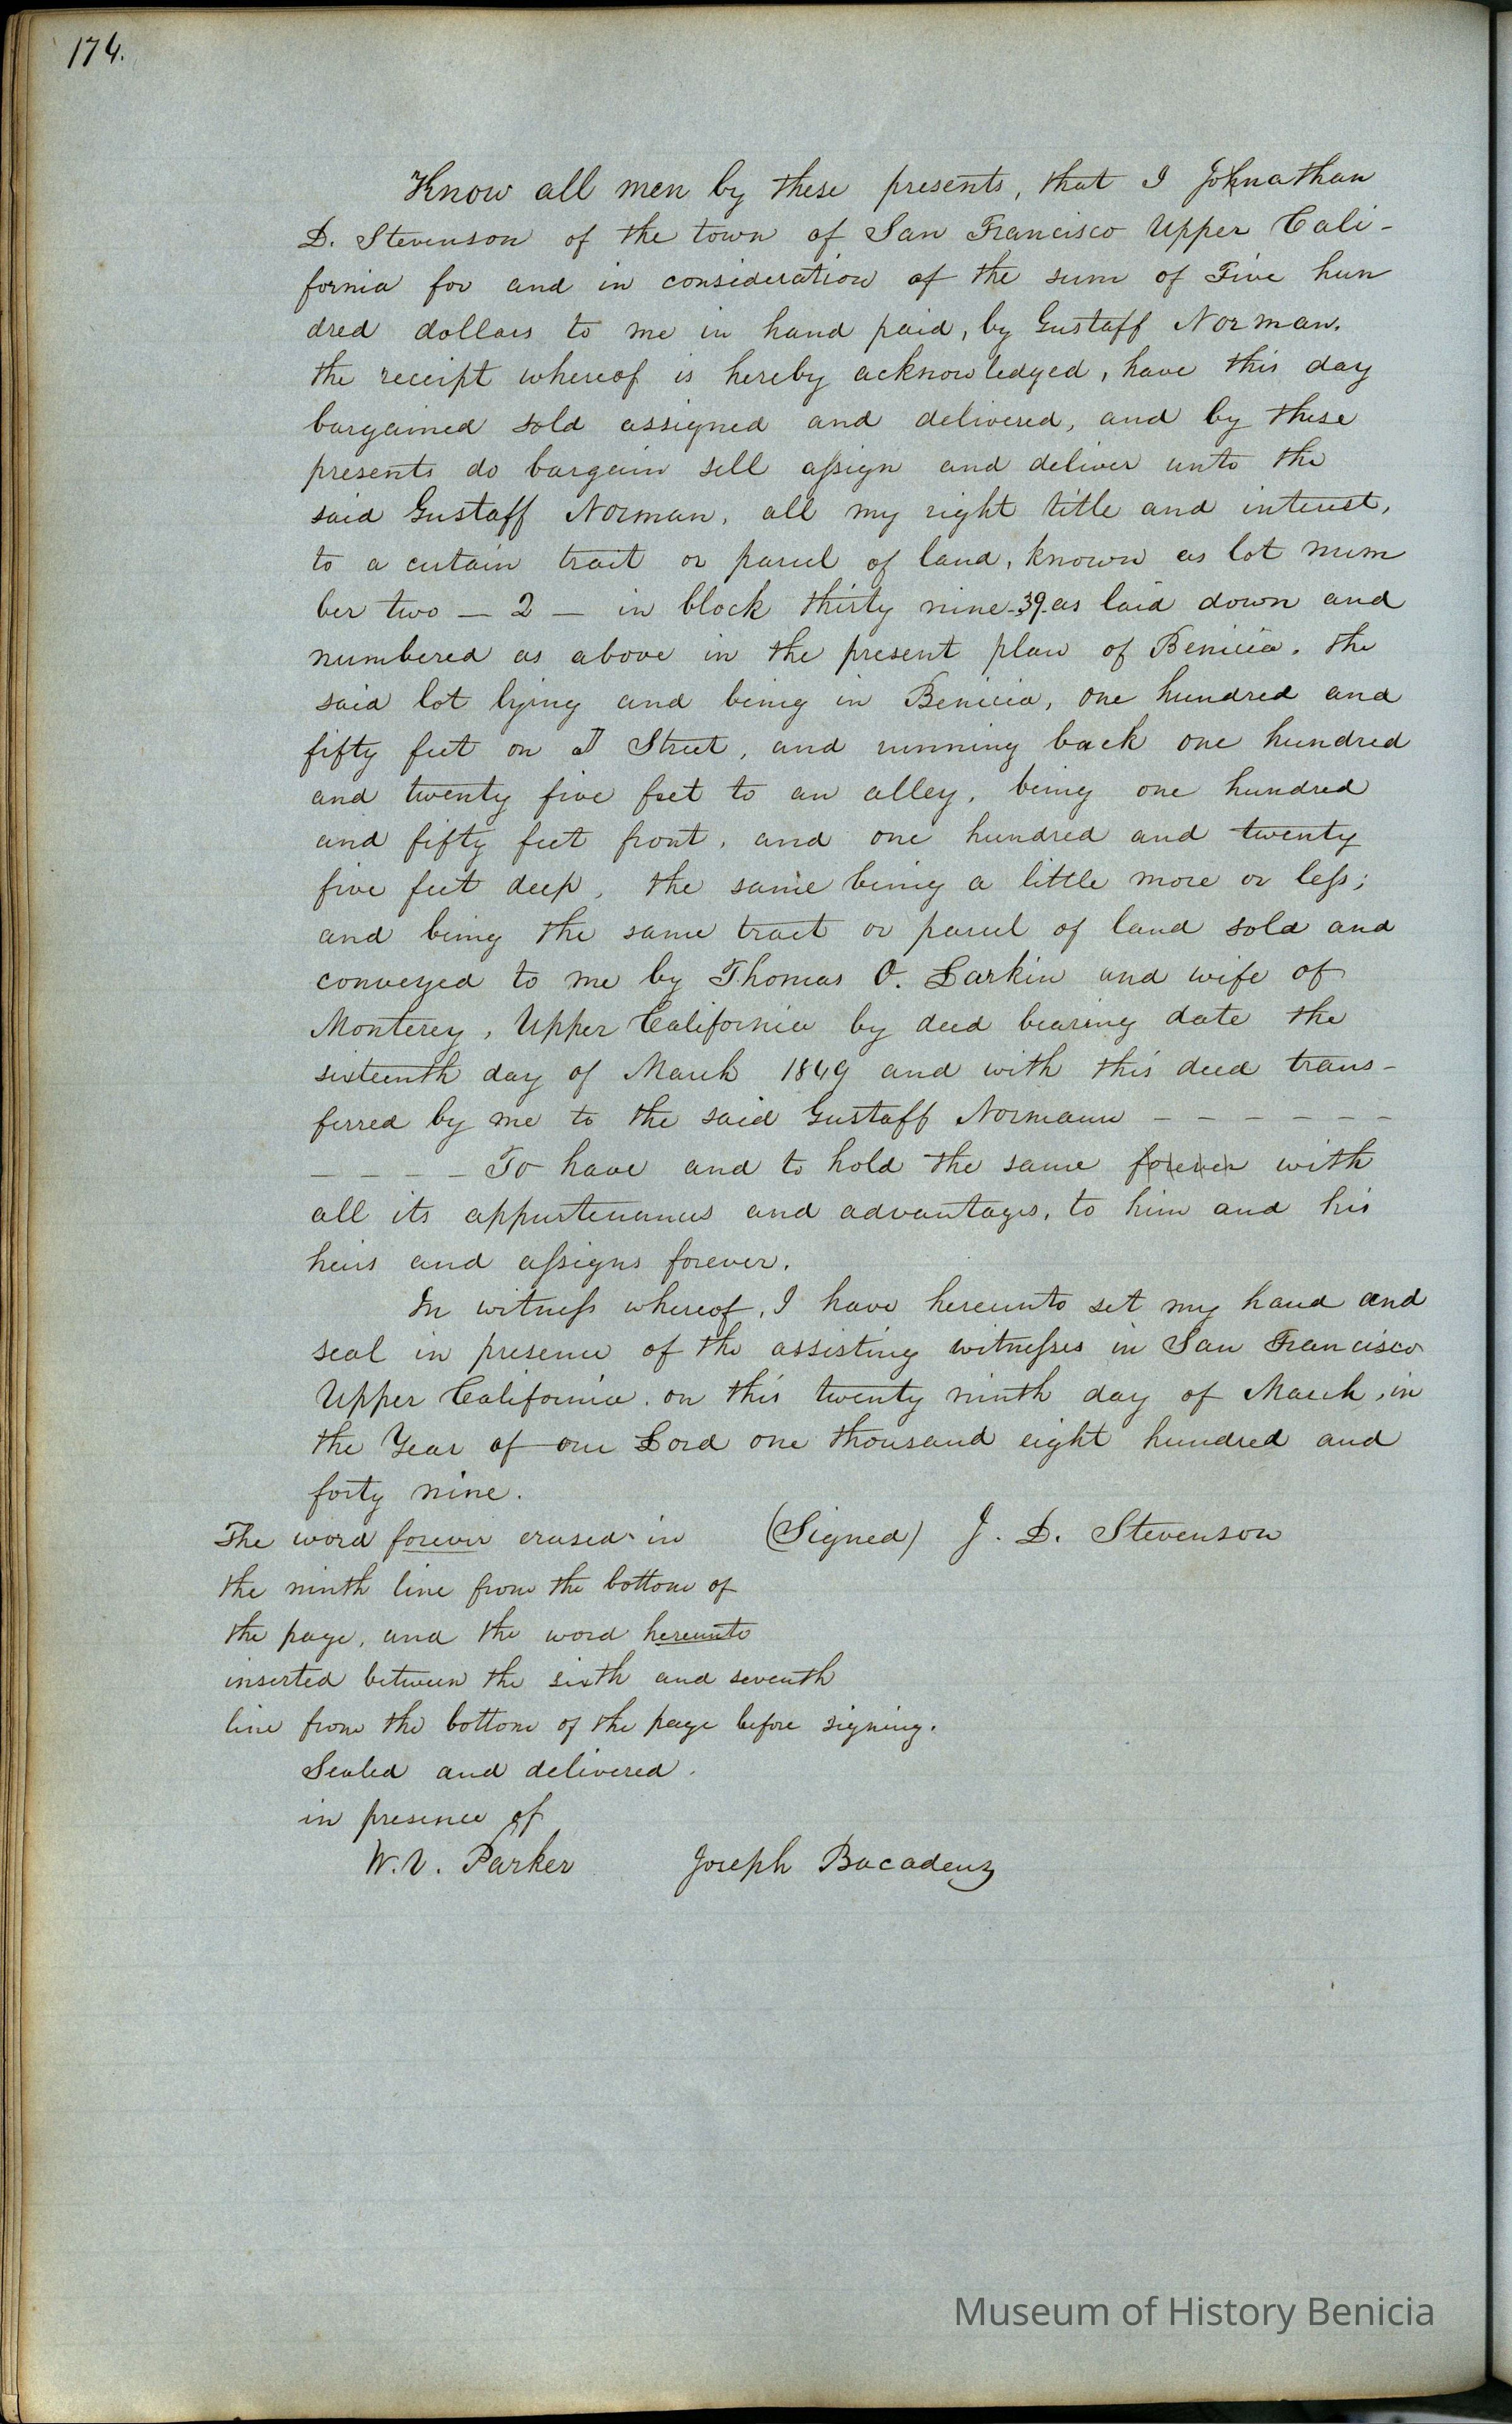 174.
Know all men by these presents, that I Johnathan
D. Stevenson of the town of San Francisco Upper Cali-
fornia for and in consideration of the sum of Five hun
dred dollars to me in hand paid, by Gustaff Norman.
the receipt whereof is hereby acknowledged, have this day
bargained sold assigned and delivered, and by these
presents do bargain sell assign and deliver unto the
said Gustaff Norman, all my right title and interest,
to a certain tract or parcel of land, known as lot num
ber two — 2 — in block thirty nine - 39 - as laid down and
numbered as above in the present plan of Benicia. the
said lot lying and being in Benicia, one hundred and
fifty feet on Street, and running back one hundred
and twenty five feet to an alley, being one hundred
and fifty feet front, and one hundred and twenty
five feet deep, the same being a little more or less;
and being the same tract or parcel of land sold and
conveyed to me by Thomas O. Larkin and wife of
Monterey, Upper California by deed bearing date the
sixteenth day of March 1849 and with this deed trans-
ferred by me to the said Gustaff Normann — — — — — —
— — — — To have and to hold the same forever with
all its appurtenances and advantages, to him and his
heirs and assigns forever.
In witness whereof, I have hereunto set my hand and
seal in presence of the assisting witnesses in San Francisco
Upper California. on this twenty ninth day of March, in
the Year of our Lord one thousand eight hundred and
forty nine.
The word forever erased in (Signed) J. D. Stevenson
the ninth line from the bottom of
the page, and the word hereunto
inserted between the sixth and seventh
line from the bottom of the page before signing.
Sealed and delivered.
in presence of
W. V. Parker Joseph Bacadenz
Museum of History Benicia